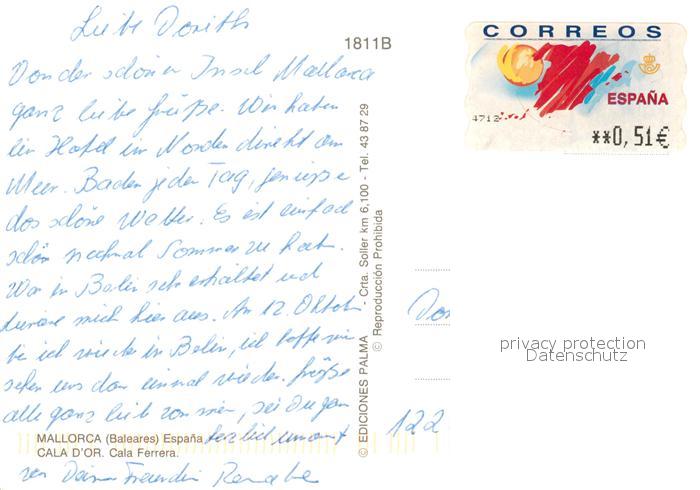 Liebe Dorith
Von der schönen Insel Mallorca
ganz liebe Grüße. Wir haben
ein Hotel im Norden direkt am
Meer. Baden jeden Tag, genieße
das schöne Wetter. Es ist einfach
schön nochmal Sommer zu haben.
War in Berlin sehr erkältet und
kuriere mich hier aus. Am 12. Oktober
bin ich wieder in Berlin, ich hoffe wir
sehen uns dann einmal wieder. Grüße
alle ganz lieb von mir, sei Du ganz
herzlich umarmt
von Deiner Freundin Renate
MALLORCA (Baleares) España
CALA D'OR. Cala Ferrera.
1811B
© EDICIONES PALMA - Crta. Soller km 6,100 - Tel. 43 87 29
© Reproducción Prohibida
CORREOS
ESPAÑA
4712
**0,51€
Do
122
privacy protection
Datenschutz